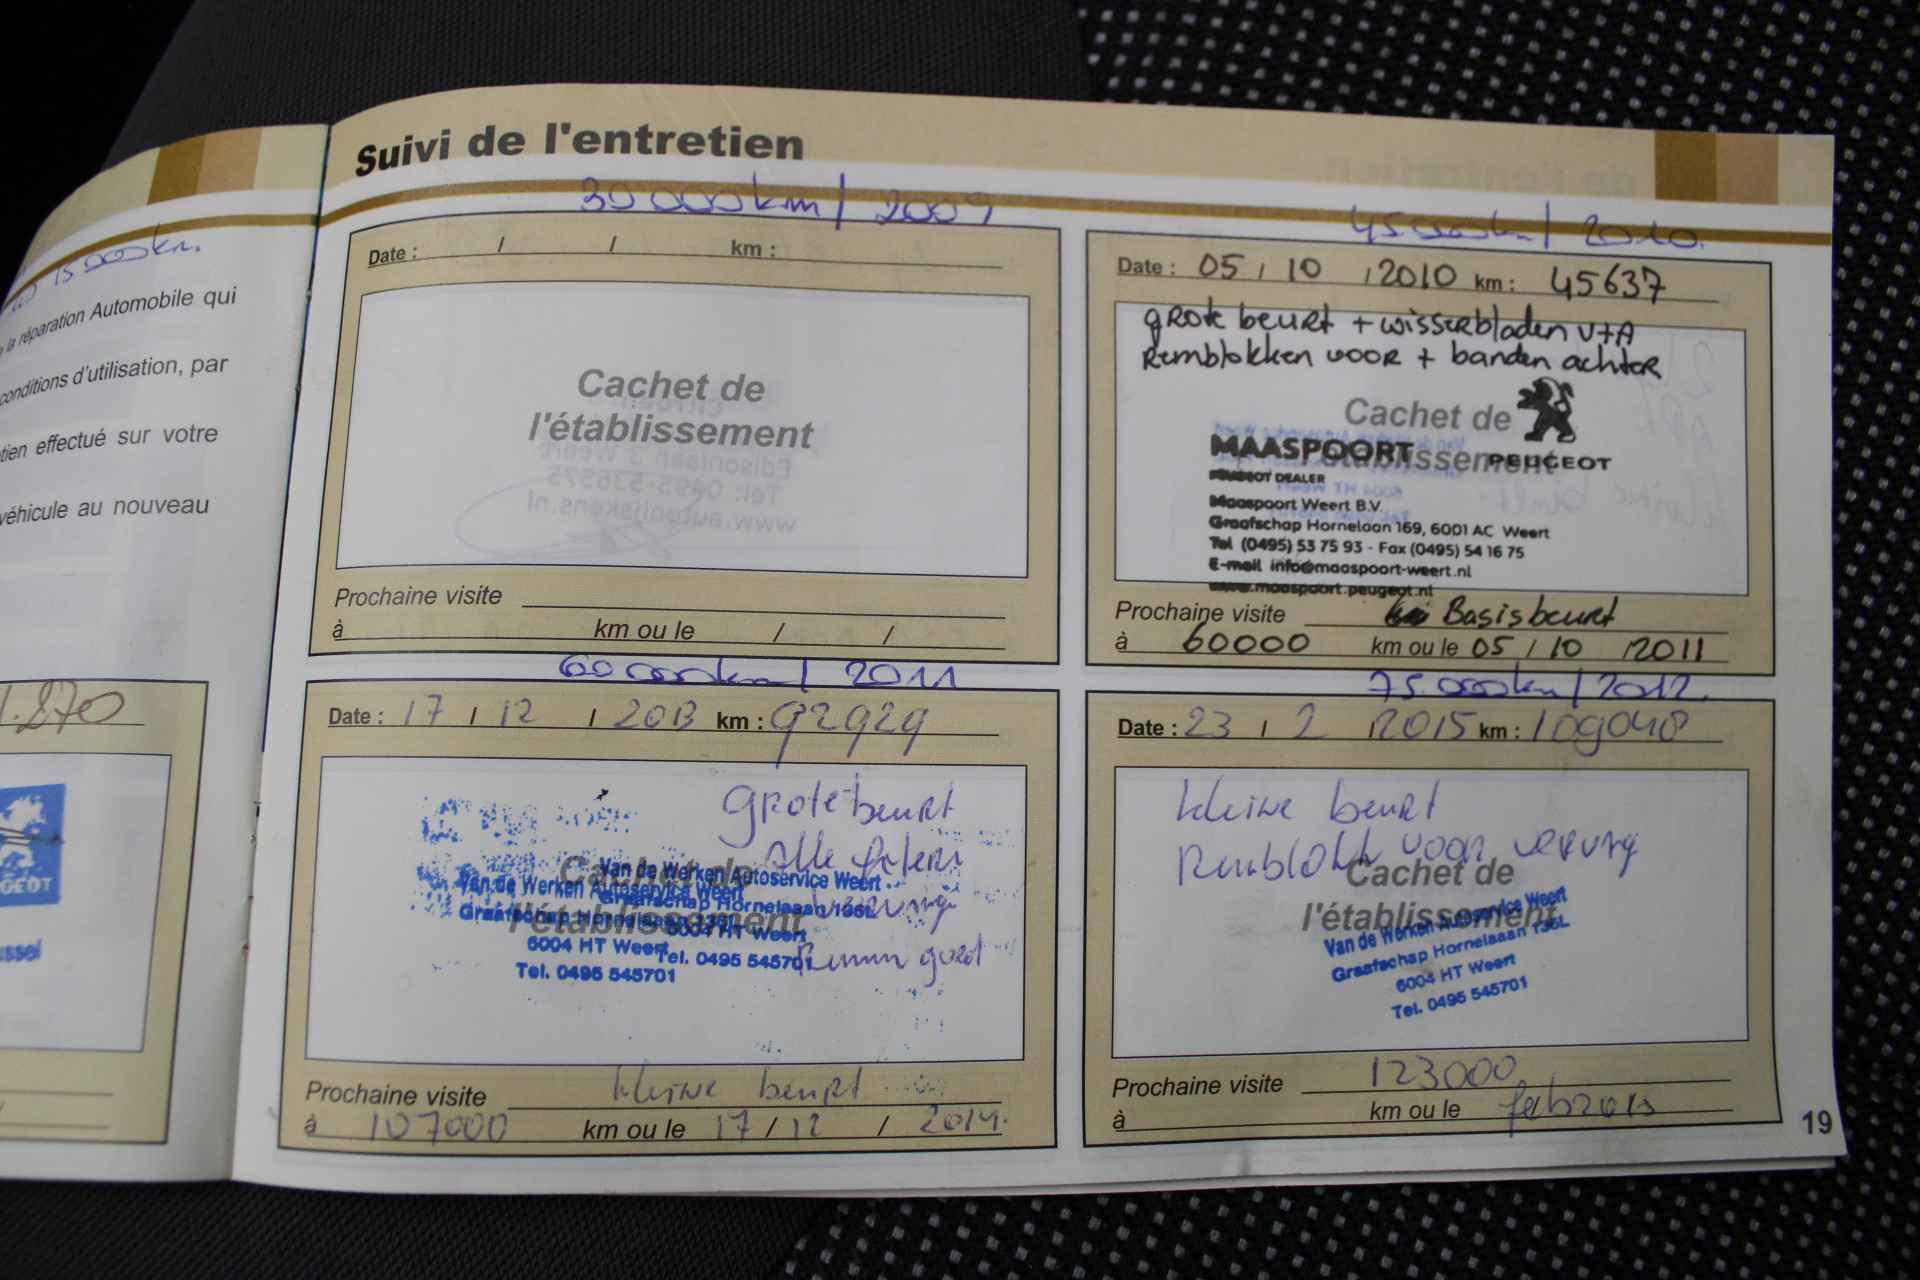 15 000km.
la réparation Automobile qui
conditions d'utilisation, par
effectué sur votre
véhicule au nouveau
Suivi de l'entretien
30 000km / 2009
Date : / / km :
Cachet de
l'établissement
Prochaine visite
à km ou le / /
45.000km / 2010.
Date : 05 / 10 / 2010 km : 45637
grote beurt + wisserbladen V+A
Remblokken voor + banden achter
Cachet de
l'établissement
MAASPOORT PEUGEOT
PEUGEOT DEALER
Maaspoort Weert B.V.
Graafschap Hornelaan 169, 6001 AC Weert
Tel (0495) 53 75 93 - Fax (0495) 54 16 75
E-mail info@maaspoort-weert.nl
www.maaspoort.peugeot.nl
Prochaine visite Basisbeurt
à 60000 km ou le 05 / 10 / 2011
60 000km / 2011
Date : 17 / 12 / 2013 km : 92929
Grote beurt
Alle filters
Cachet de
l'établissement
Van de Werken Autoservice Weert
Graafschap Hornelaaan 136L
6004 HT Weert
Tel. 0495 545701
Van de Werken Autoservice Weert
Graafschap Hornelaaan 136L
6004 HT Weert
Tel. 0495 545701
Remmen goed
Prochaine visite kleine beurt
à 107000 km ou le 17 / 12 / 2014.
75.000km / 2012.
Date : 23 / 2 / 2015 km : 109048
kleine beurt
Remblokk voor
Cachet de
l'établissement
Van de Werken Autoservice Weert
Graafschap Hornelaaan 136L
6004 HT Weert
Tel. 0495 545701
Prochaine visite 123000
à km ou le
19